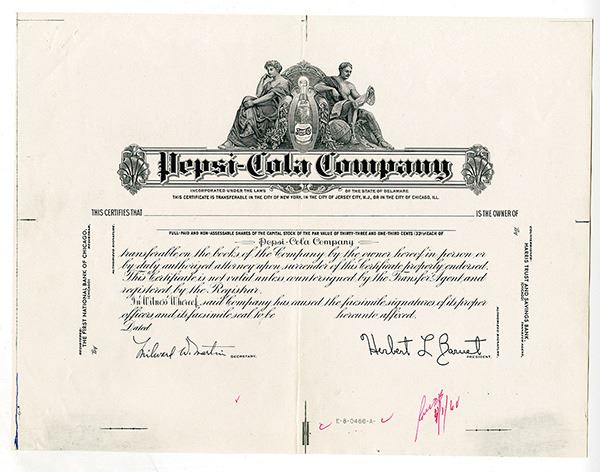 Pepsi-Cola Company
INCORPORATED UNDER THE LAWS OF THE STATE OF DELAWARE
THIS CERTIFICATE IS TRANSFERABLE IN THE CITY OF NEW YORK, IN THE CITY OF JERSEY CITY, N.J., OR IN THE CITY OF CHICAGO, ILL.
THIS CERTIFIES THAT IS THE OWNER OF
FULL-PAID AND NON-ASSESSABLE SHARES OF THE CAPITAL STOCK OF THE PAR VALUE OF THIRTY-THREE AND ONE-THIRD CENTS (33⅓¢) EACH OF
Pepsi-Cola Company
transferable on the books of the Company by the owner hereof in person or
by duly authorized attorney upon surrender of this Certificate properly endorsed.
This Certificate is not valid unless countersigned by the Transfer Agent and
registered by the Registrar.
In Witness Whereof, said Company has caused the facsimile signatures of its proper
officers and its facsimile seal to be hereunto affixed.
Dated
Milward W. Martin
SECRETARY.
Herbert L Barnet
PRESIDENT.
REGISTERED:
THE FIRST NATIONAL BANK OF CHICAGO,
(CHICAGO) REGISTRAR,
By
AUTHORIZED SIGNATURE.
COUNTERSIGNED:
HARRIS TRUST AND SAVINGS BANK,
CHICAGO TRANSFER AGENT,
By
AUTHORIZED SIGNATURE.
E-8-0466-A-